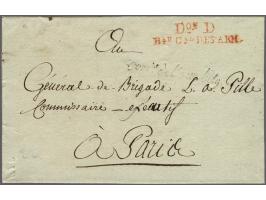 Don D
Bau Gal DES ARM.
Au
Général de Brigade L. a. Pille
Commissaire executif
à Paris